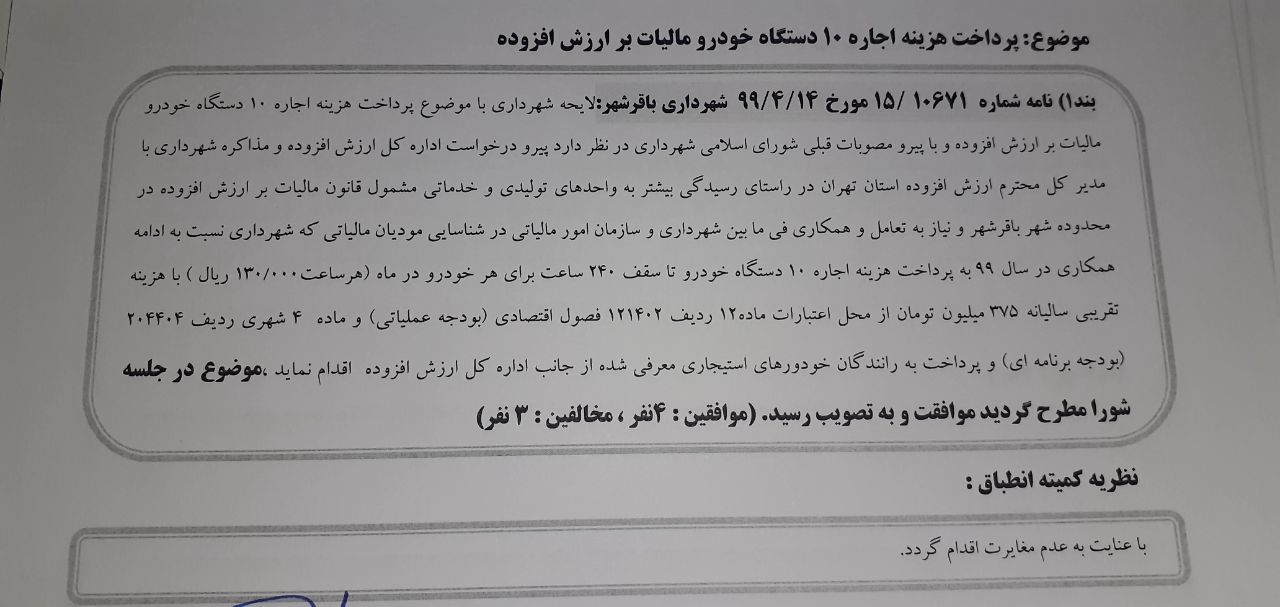 موضوع: پرداخت هزینه اجاره ۱۰ دستگاه خودرو مالیات بر ارزش افزوده
بند۱) نامه شماره ۱۰۶۷۱ /۱۵ مورخ ۹۹/۴/۱۴ شهرداری باقرشهر:لایحه شهرداری با موضوع پرداخت هزینه اجاره ۱۰ دستگاه خودرو
مالیات بر ارزش افزوده و با پیرو مصوبات قبلی شورای اسلامی شهرداری در نظر دارد پیرو درخواست اداره کل ارزش افزوده و مذاکره شهرداری با
مدیر کل محترم ارزش افزوده استان تهران در راستای رسیدگی بیشتر به واحدهای تولیدی و خدماتی مشمول قانون مالیات بر ارزش افزوده در
محدوده شهر باقرشهر و نیاز به تعامل و همکاری فی ما بین شهرداری و سازمان امور مالیاتی در شناسایی مودیان مالیاتی که شهرداری نسبت به ادامه
همکاری در سال ۹۹ به پرداخت هزینه اجاره ۱۰ دستگاه خودرو تا سقف ۲۴۰ ساعت برای هر خودرو در ماه (هرساعت۱۳۰/۰۰۰ ریال ) با هزینه
تقریبی سالیانه ۳۷۵ میلیون تومان از محل اعتبارات ماده۱۲ ردیف ۱۲۱۴۰۲ فصول اقتصادی (بودجه عملیاتی) و ماده ۴ شهری ردیف ۲۰۴۴۰۴
(بودجه برنامه ای) و پرداخت به رانندگان خودورهای استیجاری معرفی شده از جانب اداره کل ارزش افزوده اقدام نماید ،موضوع در جلسه
شورا مطرح گردید موافقت و به تصویب رسید. (موافقین : ۴نفر ، مخالفین : ۳ نفر)
نظریه کمیته انطباق :
با عنایت به عدم مغایرت اقدام گردد.